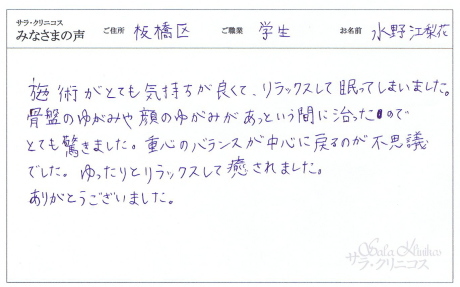 サラ・クリニコス
みなさまの声 ご住所 板橋区 ご職業 学生 お名前 水野江梨花
施術がとても気持ちが良くて、リラックスして眠ってしまいました。
骨盤のゆがみや顔のゆがみがあっという間に治ったので
とても驚きました。重心のバランスが中心に戻るのが不思議
でした。ゆったりとリラックスして癒されました。
ありがとうございました。
Sala Klinikos
サラ・クリニコス